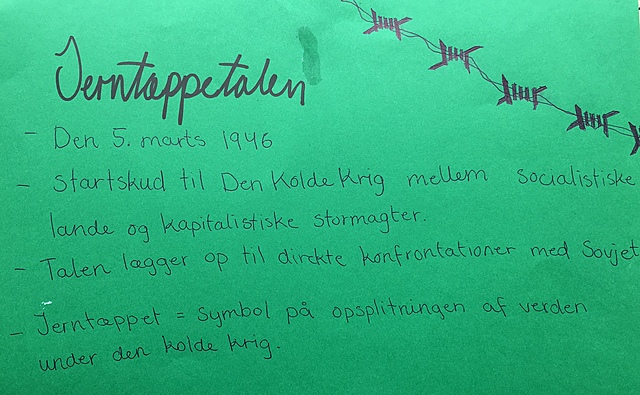 Jerntæppetalen
- Den 5. marts 1946
- Startskud til Den Kolde Krig mellem socialistiske
lande og kapitalistiske stormagter.
- Talen lægger op til direkte konfrontationer med Sovjet
- Jerntæppet = symbol på opsplitningen af verden
under den kolde krig.